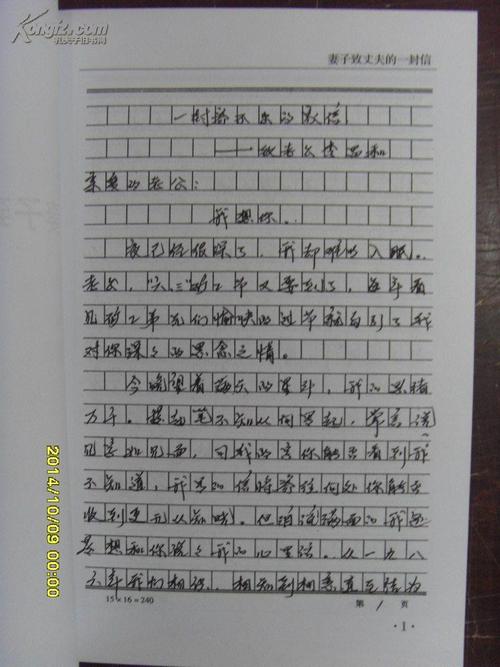 Kongfz.com
孔夫子旧书网
妻子致丈夫的一封信
一封寄不出的家信
——致老公李思和
亲爱的老公:
我想你。
夜已经很深了,我却难以入眠。
老公,"六·三"矿工节又要到了,每年看
见矿工弟兄们愉快的过节
对你深深的思念之情。
今晚望着满天的星斗,我的思绪
万千。提起笔不知从何写起,常言说
见字如见面,可我的字你能否看到我
不知道,我的信将寄往何处你能否
收到更无从知晓。但泪流满面的我还
是想和你说说我的心里话。从一九八
六年我们相识,相知到相亲直至结为
15×16=240
第 1 页
·1·
2014/10/09 00:00